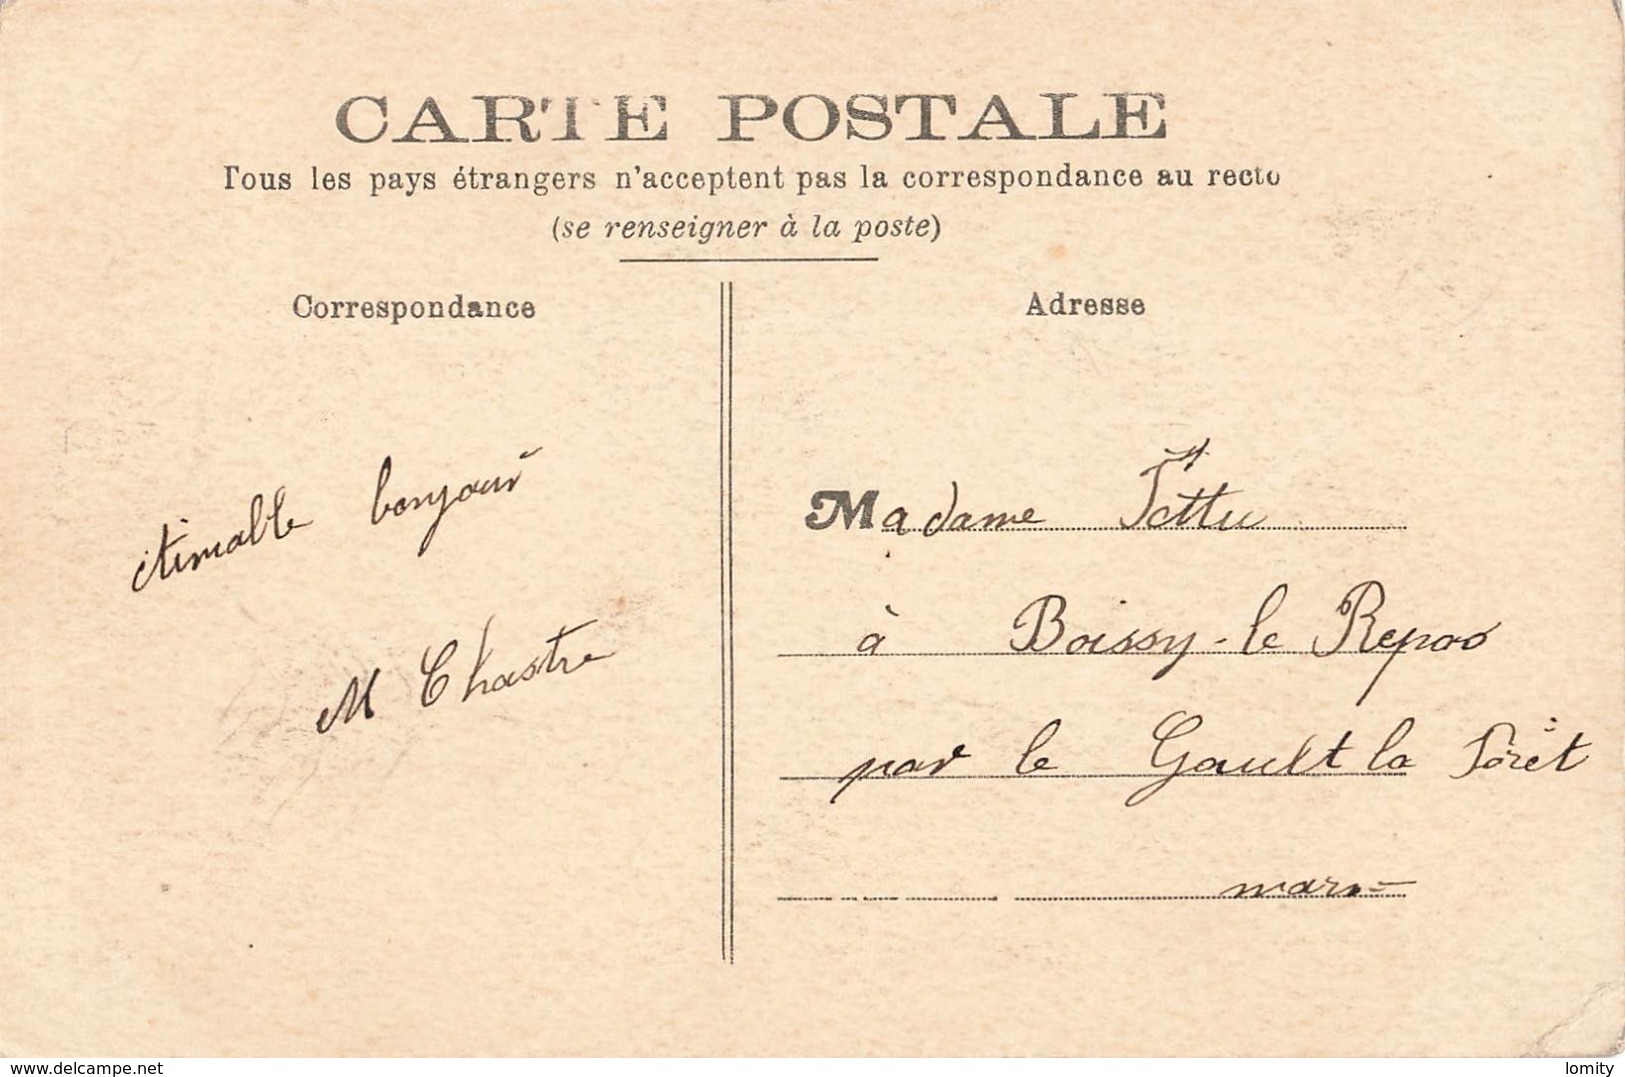 CARTE POSTALE
Tous les pays étrangers n'acceptent pas la correspondance au recto
(se renseigner à la poste)
Correspondance
Aimable bonjour
M Chastre
Adresse
Madame
à Boissy-le Repos
par le Gault la Forêt
marne
www.delcampe.net
lomity